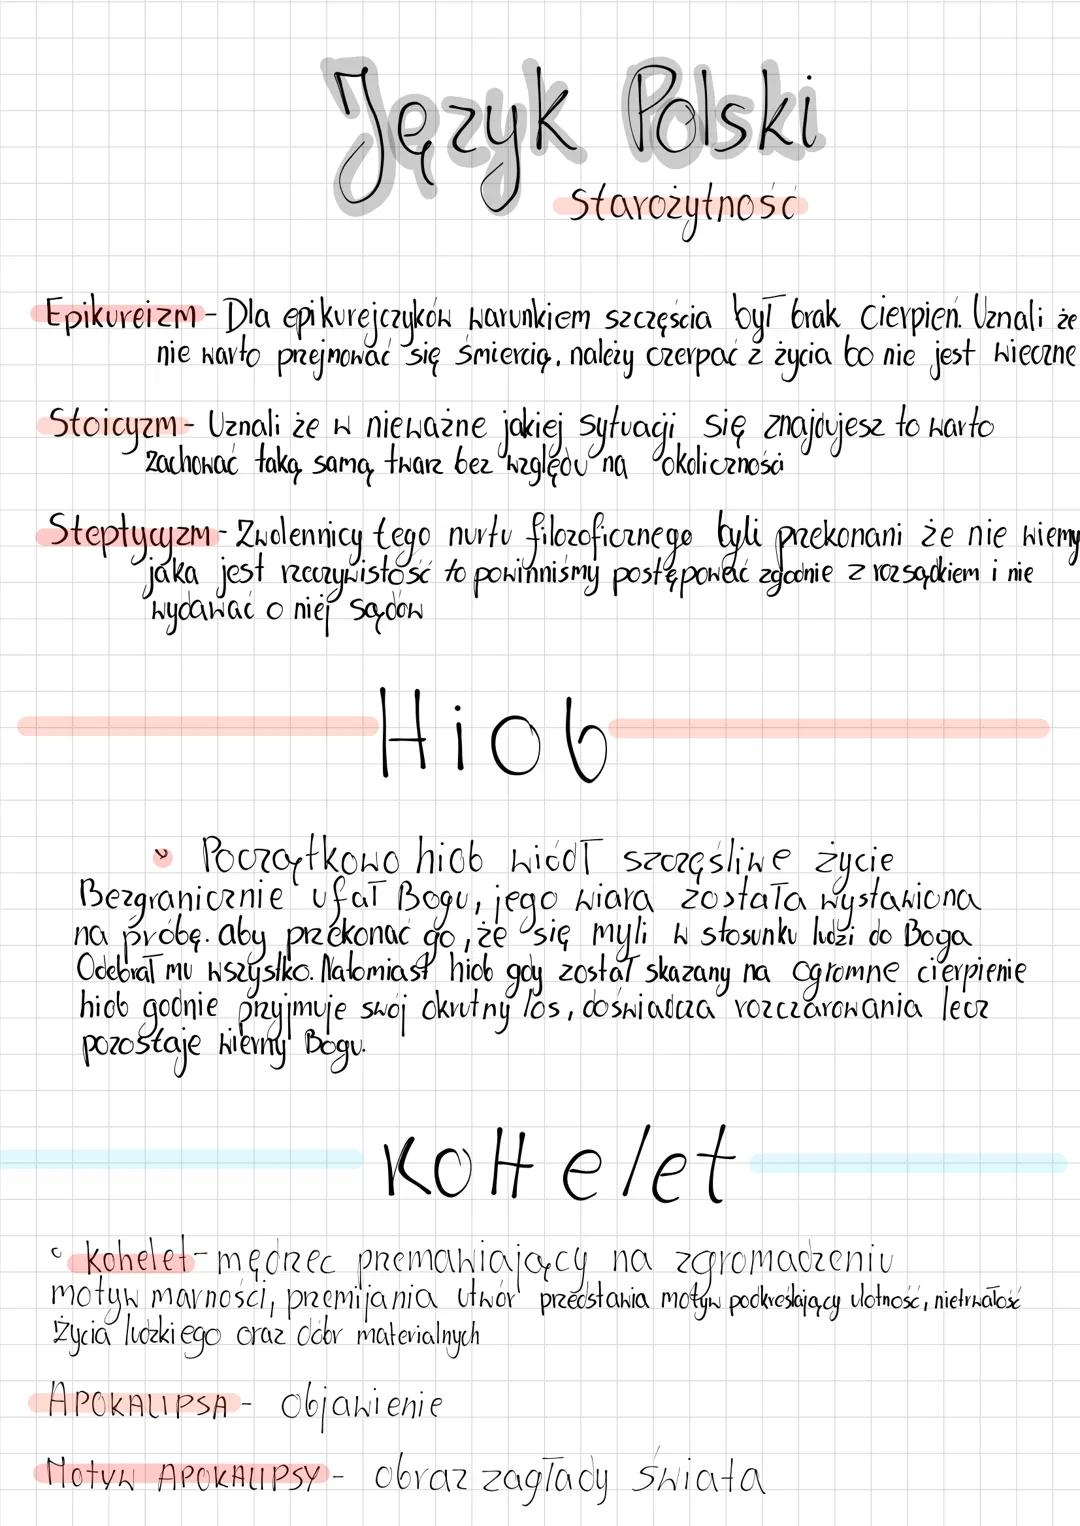 Język Polski
starożytność
Epikureizm - Dla epikurejczyków warunkiem szczęścia był brak cierpień. Uznali że
nie warto przejmować się śmiercią, należy czerpać z życia bo nie jest wieczne
Stoicyzm - Uznali że w nieważne jakiej sytuacji się znajdujesz to warto
zachować taką samą twarz bez względu na okoliczności
Steptycyzm - Zwolennicy tego nurtu filozoficznego byli przekonani że nie wiemy
jaka jest rzeczywistość to powinniśmy postępować zgodnie z rozsądkiem i nie
wydawać o niej sądów
Hiob
Początkowo hiob wiódł szczęśliwe życie
Bezgranicznie ufał Bogu, jego wiara została wystawiona
na próbę. aby przekonać go, że się myli w stosunku ludzi do Boga
Odebrał mu wszystko. Natomiast hiob gdy został skazany na ogromne cierpienie
hiob godnie przyjmuje swój okrutny los, doświadcza rozczarowania lecz
pozostaje wierny Bogu.
KoHelet
kohelet - mędrzec przemawiający na zgromadzeniu
motyw marności, przemijania utwór przedstawia motyw podkreślający ulotność, nietrwałość
Życia ludzkiego oraz dóbr materialnych
APOKALIPSA - Objawienie
Motyw APOKALIPSY - obraz zagłady świata